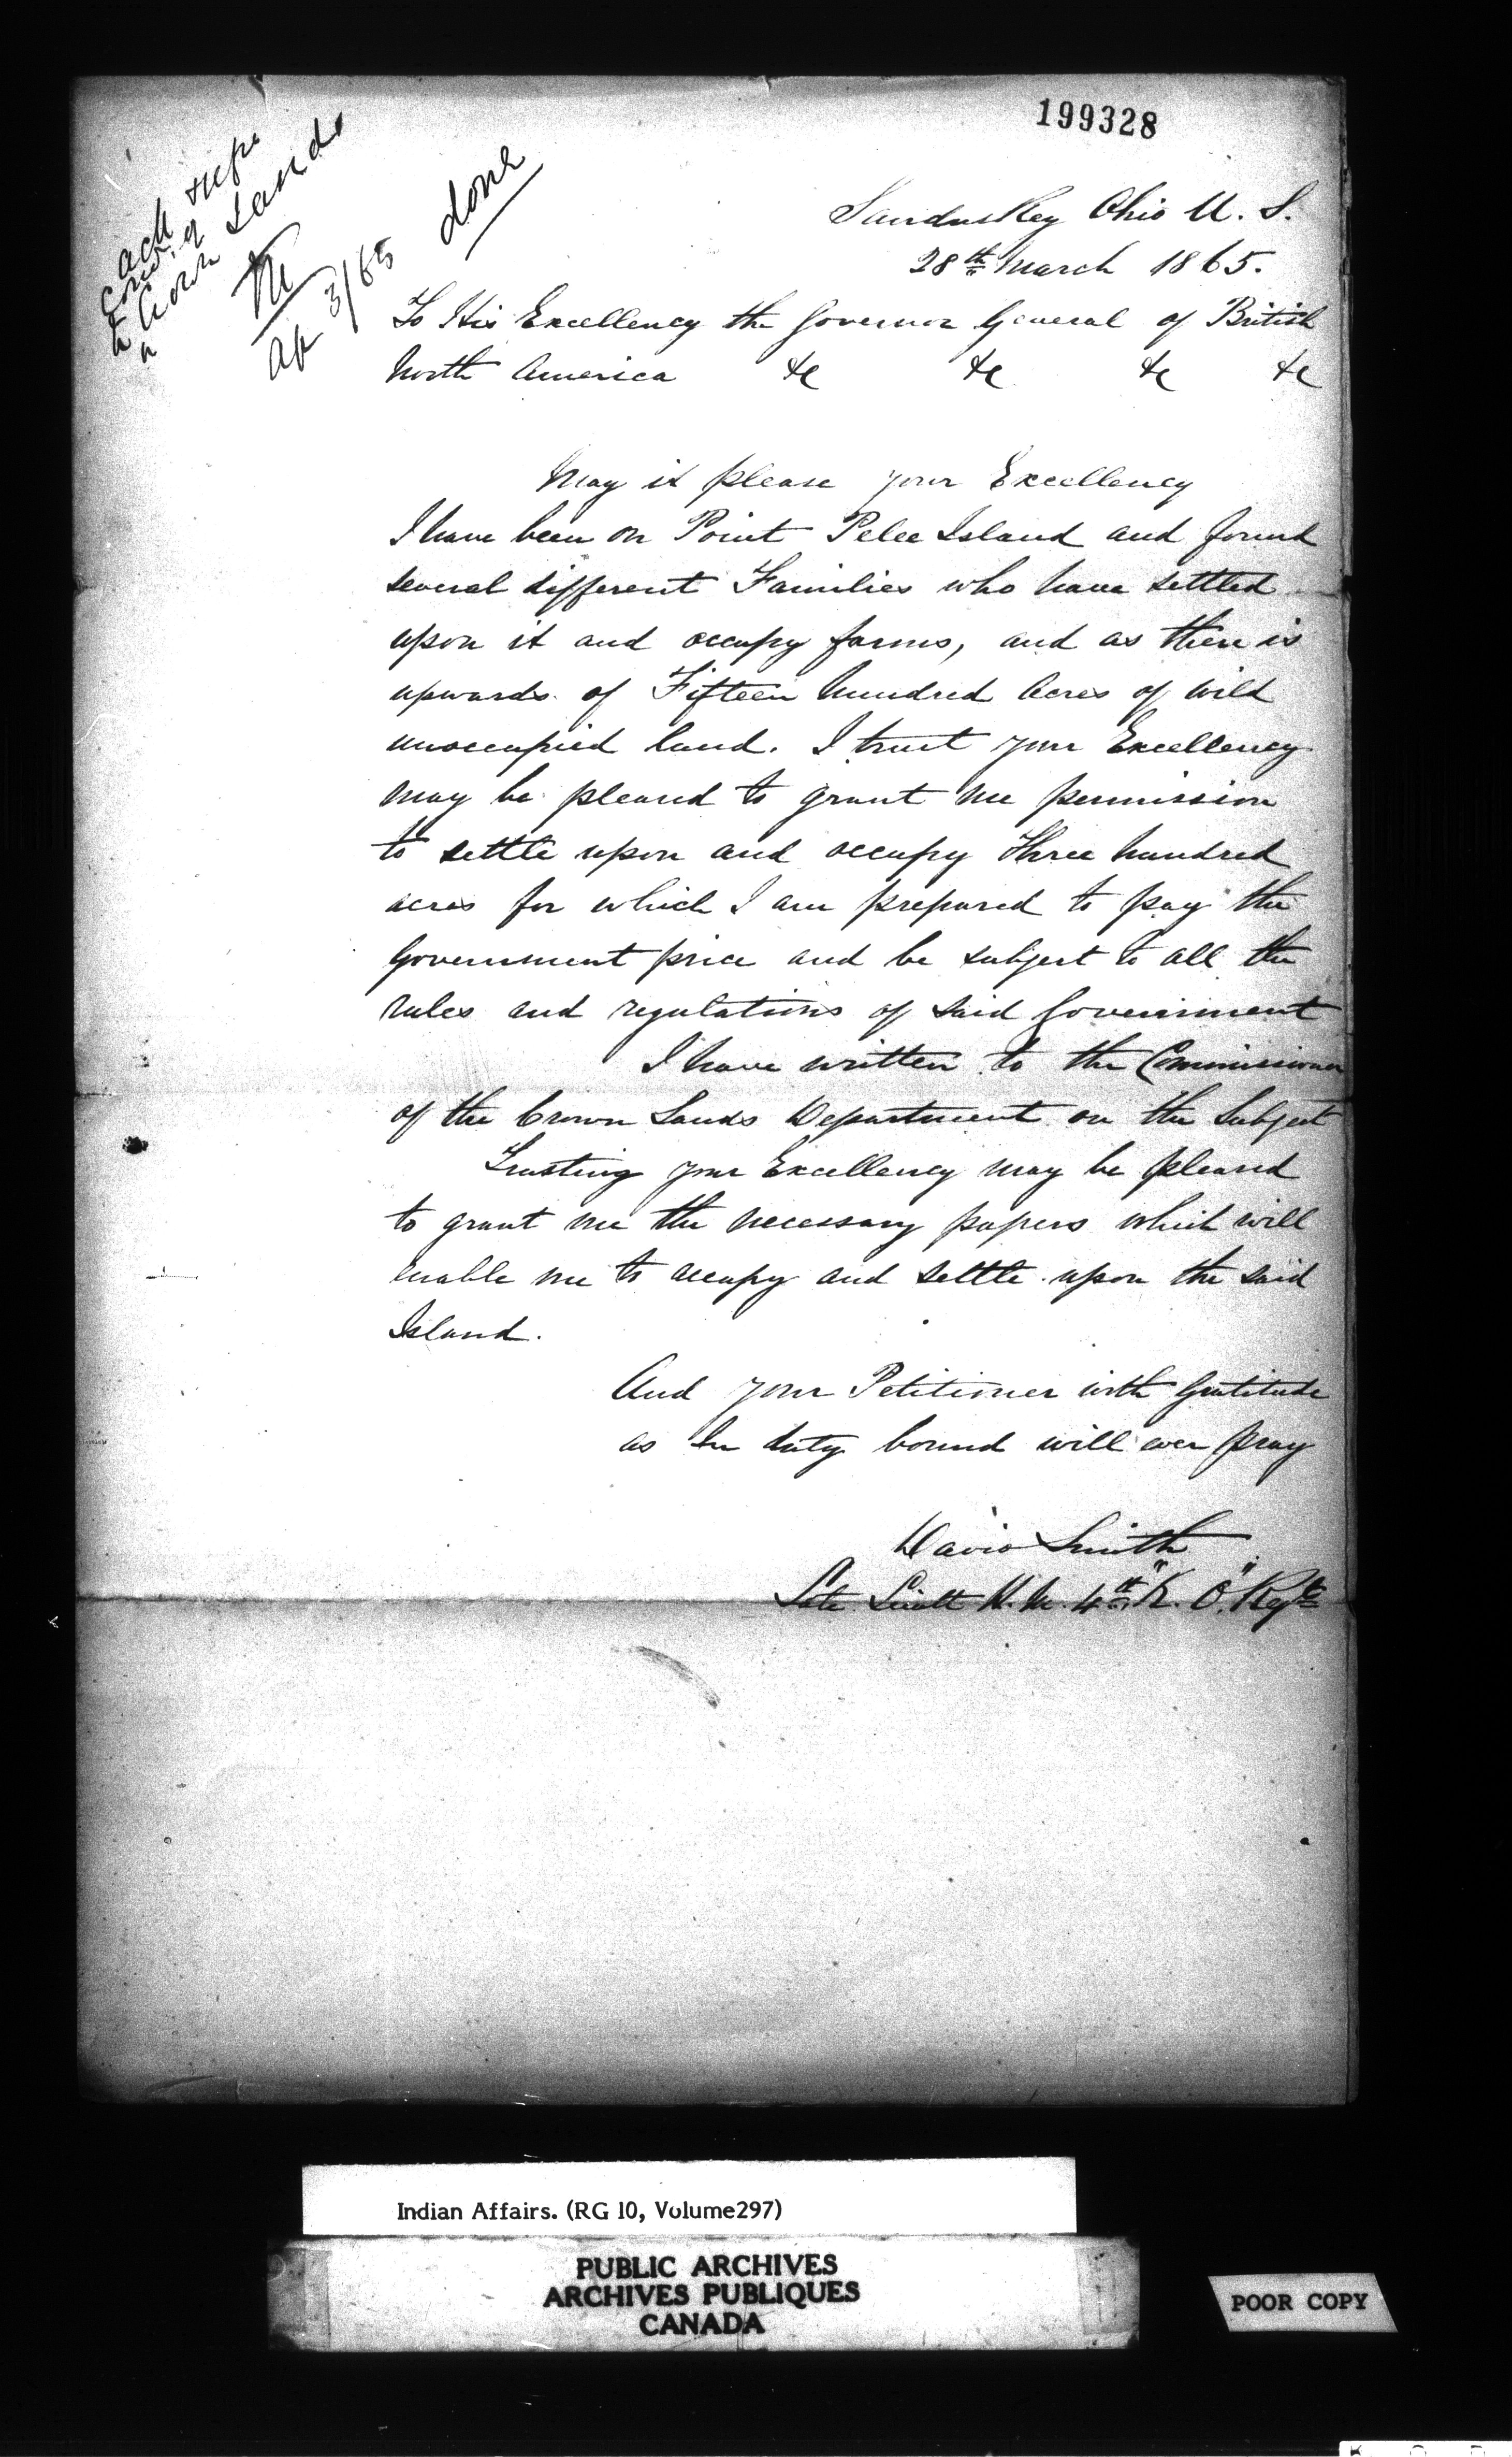 199328
ack
Lands
done
Ap 3/65
Sandusky Ohio U. S.
28th March 1865.
To His Excellency the Governor General of British
North America &c &c &c &c
May it please your Excellency
I have been on Point Pelee Island and found
several different Families who have settled
upon it and occupy farms, and as there is
upwards of Fifteen hundred Acres of wild
unoccupied land. I trust your Excellency
may be pleased to grant me permission
to settle upon and occupy three hundred
acres for which I am prepared to pay the
Government price and be subject to all the
rules and regulations of said Government
I have written to the Commissioner
of the Crown Lands Department on the Subject
Trusting your Excellency may be pleased
to grant me the necessary papers which will
enable me to occupy and settle upon the said
Island.
And your Petitioner with Gratitude
as in duty bound will ever pray
David Smith
Late Lieutt H. M. 4th "K. O." Regt
Indian Affairs. (RG 10, Volume297)
PUBLIC ARCHIVES
ARCHIVES PUBLIQUES
CANADA
POOR COPY